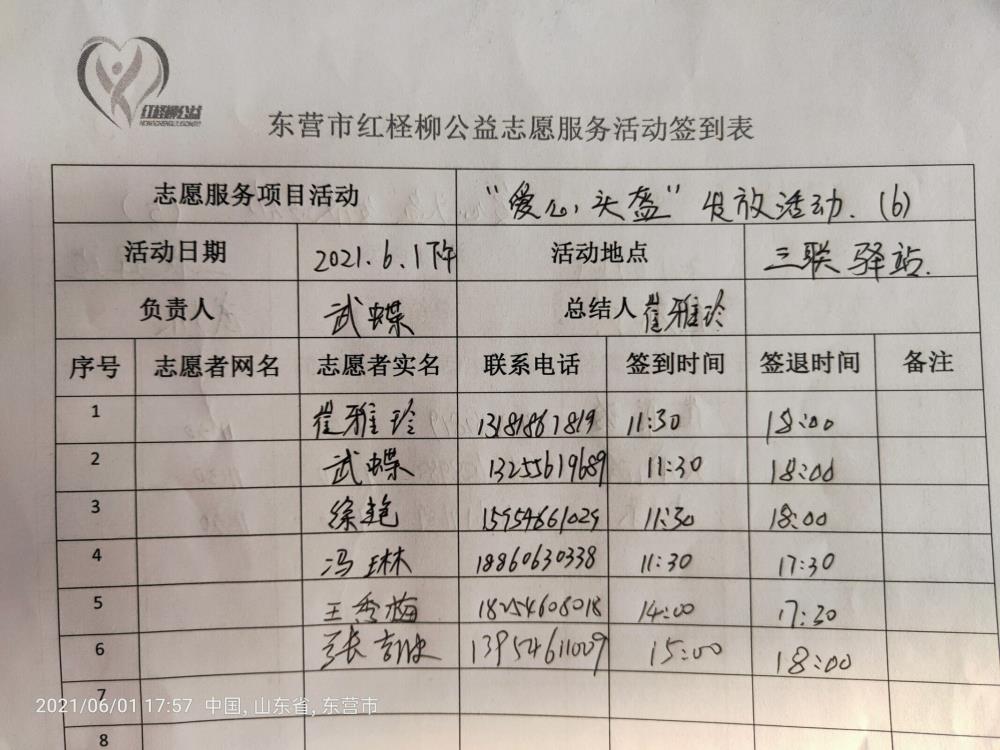 红柽柳公益
HONGCHENGLIUGONGYI
东营市红柽柳公益志愿服务活动签到表
志愿服务项目活动 “爱心头盔”发放活动.(6)
活动日期 2021.6.1下午 活动地点 三联驿站.
负责人 武蝶 总结人 崔雅玲
序号 志愿者网名 志愿者实名 联系电话 签到时间 签退时间 备注
1 崔雅玲 13181867819 11:30 18:00
2 武蝶 13255619689 11:30 18:00
3 徐艳 15954661029 11:30 18:00
4 冯琳 18860630338 11:30 17:30
5 王秀梅 18254608018 14:00 17:30
6 张 13954611009 15:00 18:00
7
2021/06/01 17:57 中国, 山东省, 东营市
8